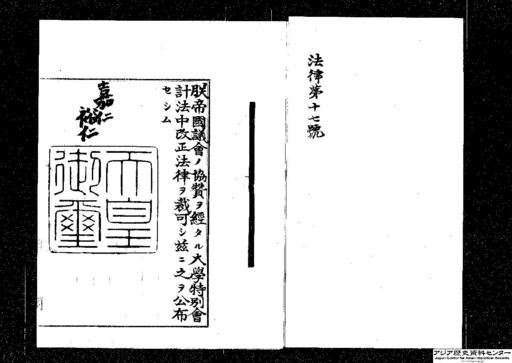 法律第十七號
朕帝國議會ノ協贊ヲ經タル大學特別會
計法中改正法律ヲ裁可シ茲ニ之ヲ公布
セシム
嘉仁
裕仁
天皇
御璽
アジア歴史資料センター
Japan Center for Asian Historical Records